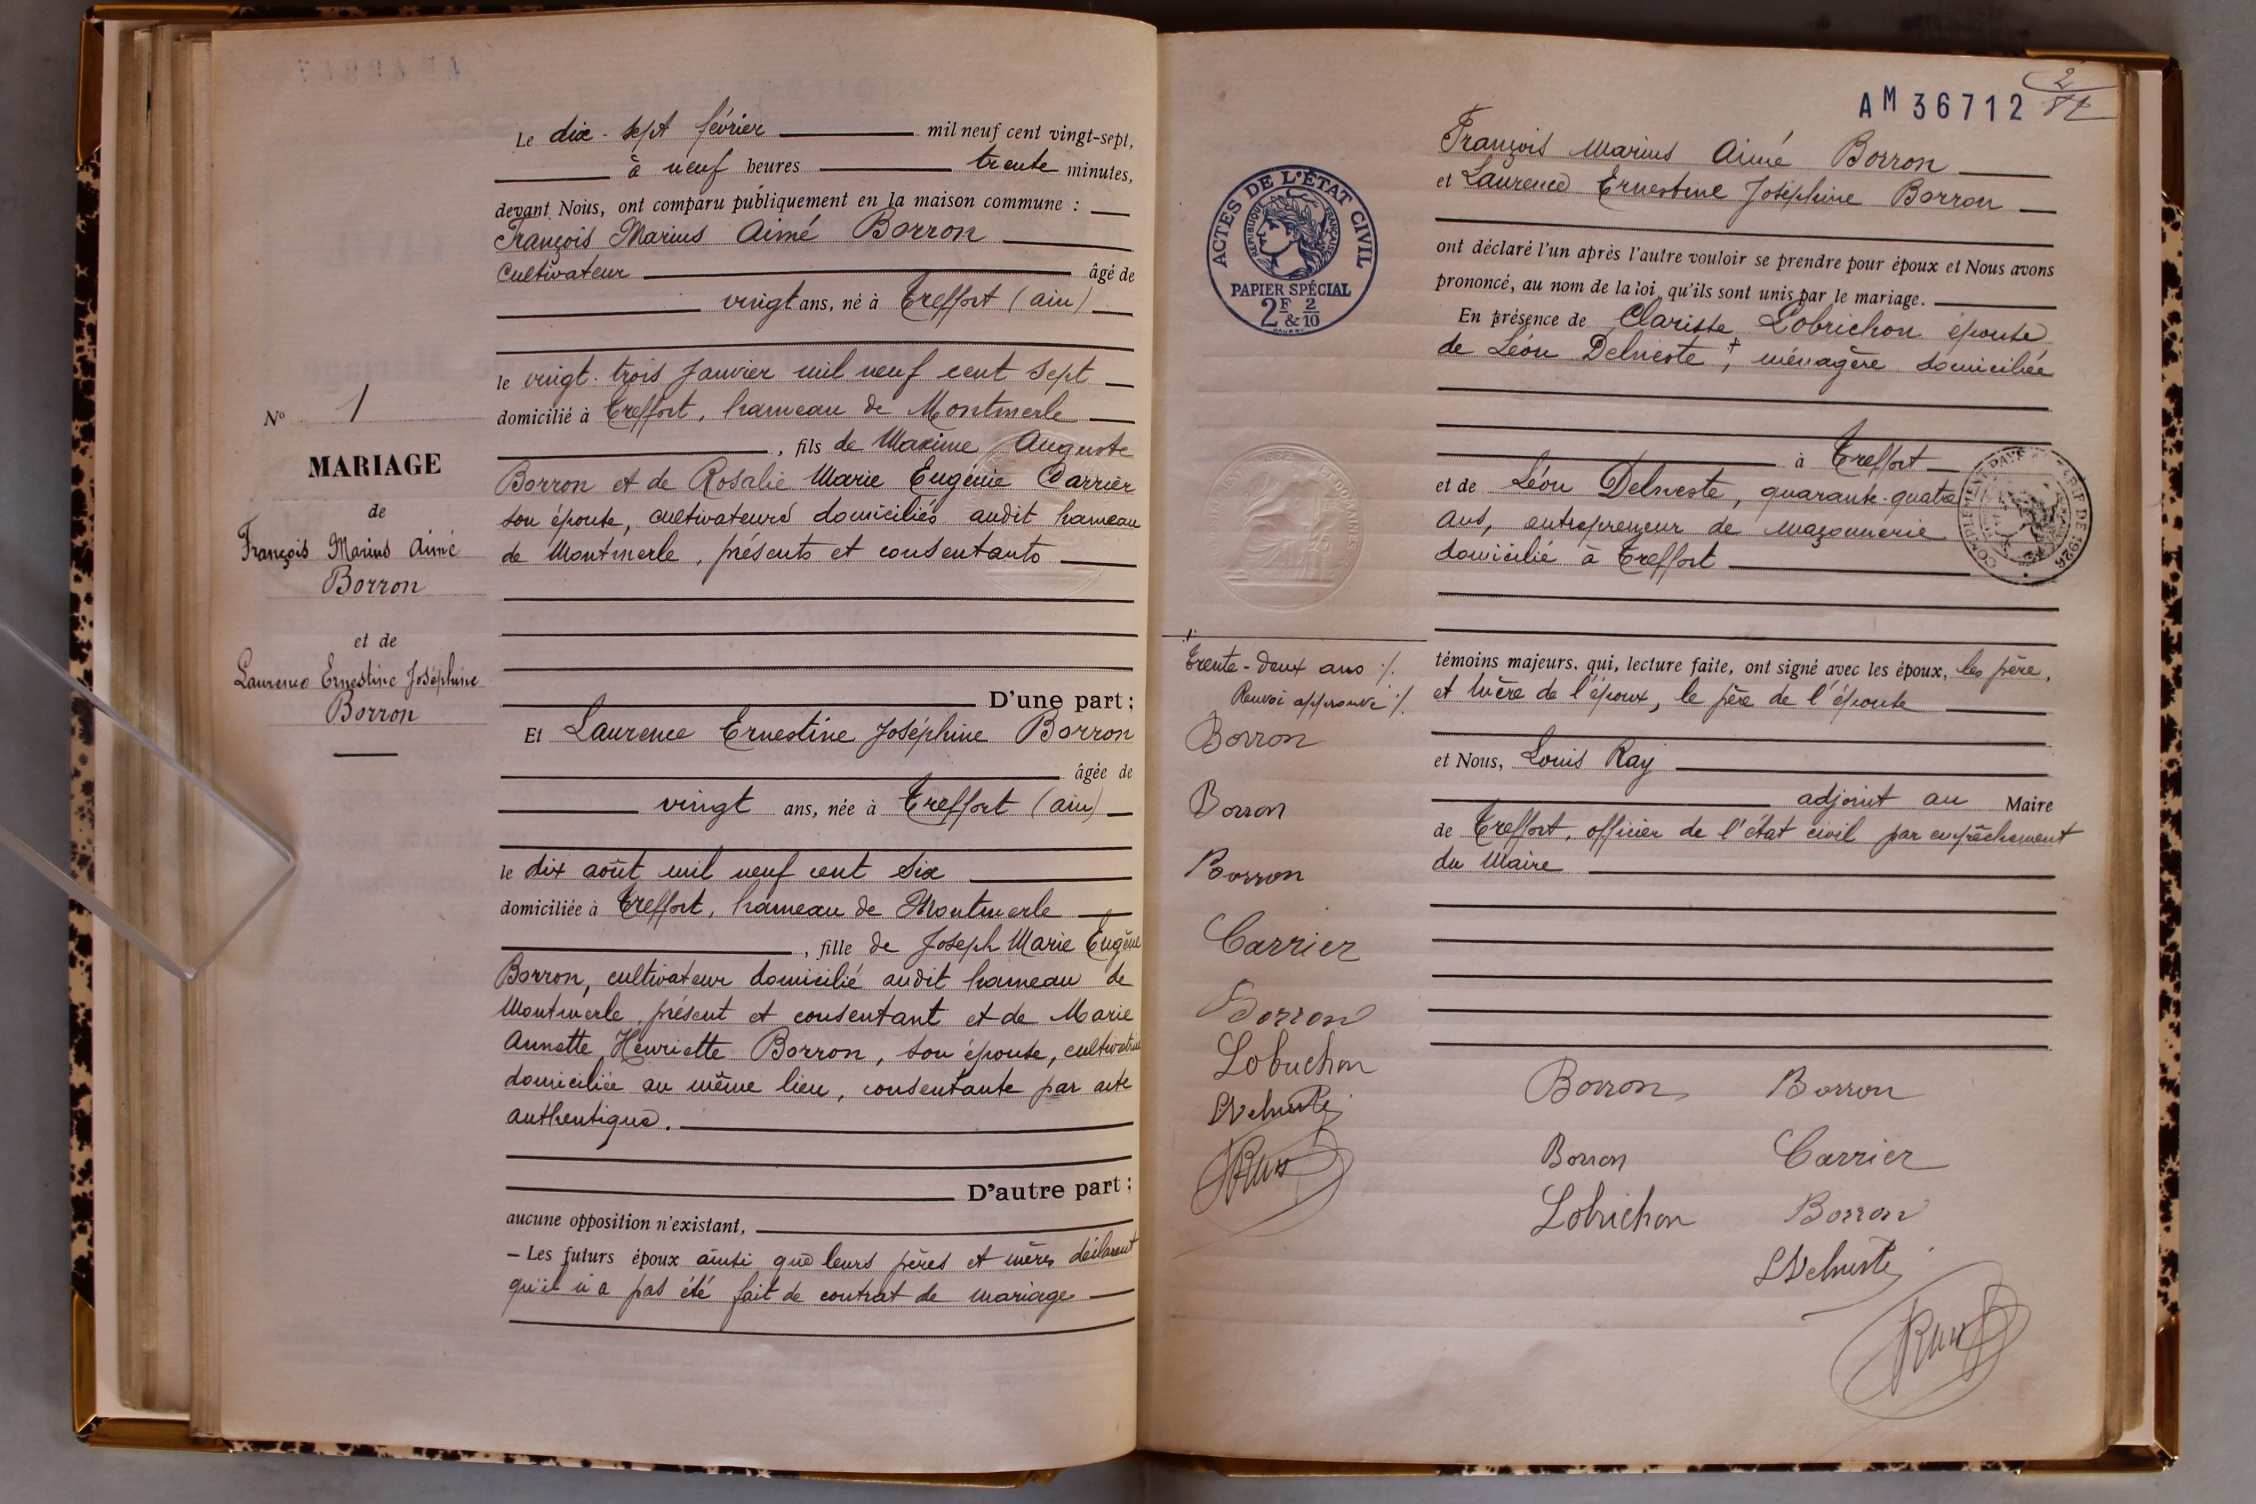 Le dix-sept février mil neuf cent vingt-sept,
à neuf heures trente minutes,
devant Nous, ont comparu publiquement en la maison commune :
François Marius Aimé Borron
cultivateur âgé de
vingt ans, né à Treffort (ain)
le vingt-trois Janvier mil neuf cent sept
domicilié à Treffort, hameau de Montmerle
, fils de Maxime Auguste
Borron et de Rosalie Marie Eugénie Carrier
son épouse, cultivateurs domiciliés audit hameau
de Montmerle, présents et consentants
D'une part ;
Et Laurence Ernestine Joséphine Borron
âgée de
vingt ans, née à Treffort (ain)
le dix août mil neuf cent six
domiciliée à Treffort, hameau de Montmerle
, fille de Joseph Marie Eugène
Borron, cultivateur domicilié audit hameau de
Montmerle, présent et consentant et de Marie
Annette Henriette Borron, son épouse, cultivatrice
domiciliée au même lieu, consentante par acte
authentique.
D'autre part :
aucune opposition n'existant,
– Les futurs époux ainsi que leurs pères et mères déclarent
qu'il n'a pas été fait de contrat de mariage
No 1
MARIAGE
de
François Marius Aimé
Borron
et de
Laurence Ernestine Joséphine
Borron
AM 36712
2
ACTES DE L'ÉTAT CIVIL
RÉPUBLIQUE FRANÇAISE
PAPIER SPÉCIAL
2F & 2/10
François Marius Aimé Borron
et Laurence Ernestine Joséphine Borron
ont déclaré l'un après l'autre vouloir se prendre pour époux et Nous avons
prononcé, au nom de la loi, qu'ils sont unis par le mariage.
En présence de Clarisse Lobrichon épouse
de Léon Delneste, + ménagère domiciliée
à Treffort
et de Léon Delneste, quarante-quatre
ans, entrepreneur de maçonnerie
domicilié à Treffort
témoins majeurs, qui, lecture faite, ont signé avec les époux, les père,
et mère de l'époux, le père de l'épouse
et Nous, Louis Ray
adjoint au Maire
de Treffort, officier de l'état civil par empêchement
du Maire
Trente-deux ans ./.
Renvoi approuvé ./.
Borron
Borron
Borron
Carrier
Borron
Lobrichon
Borron Borron
Borron Carrier
Lobrichon Borron